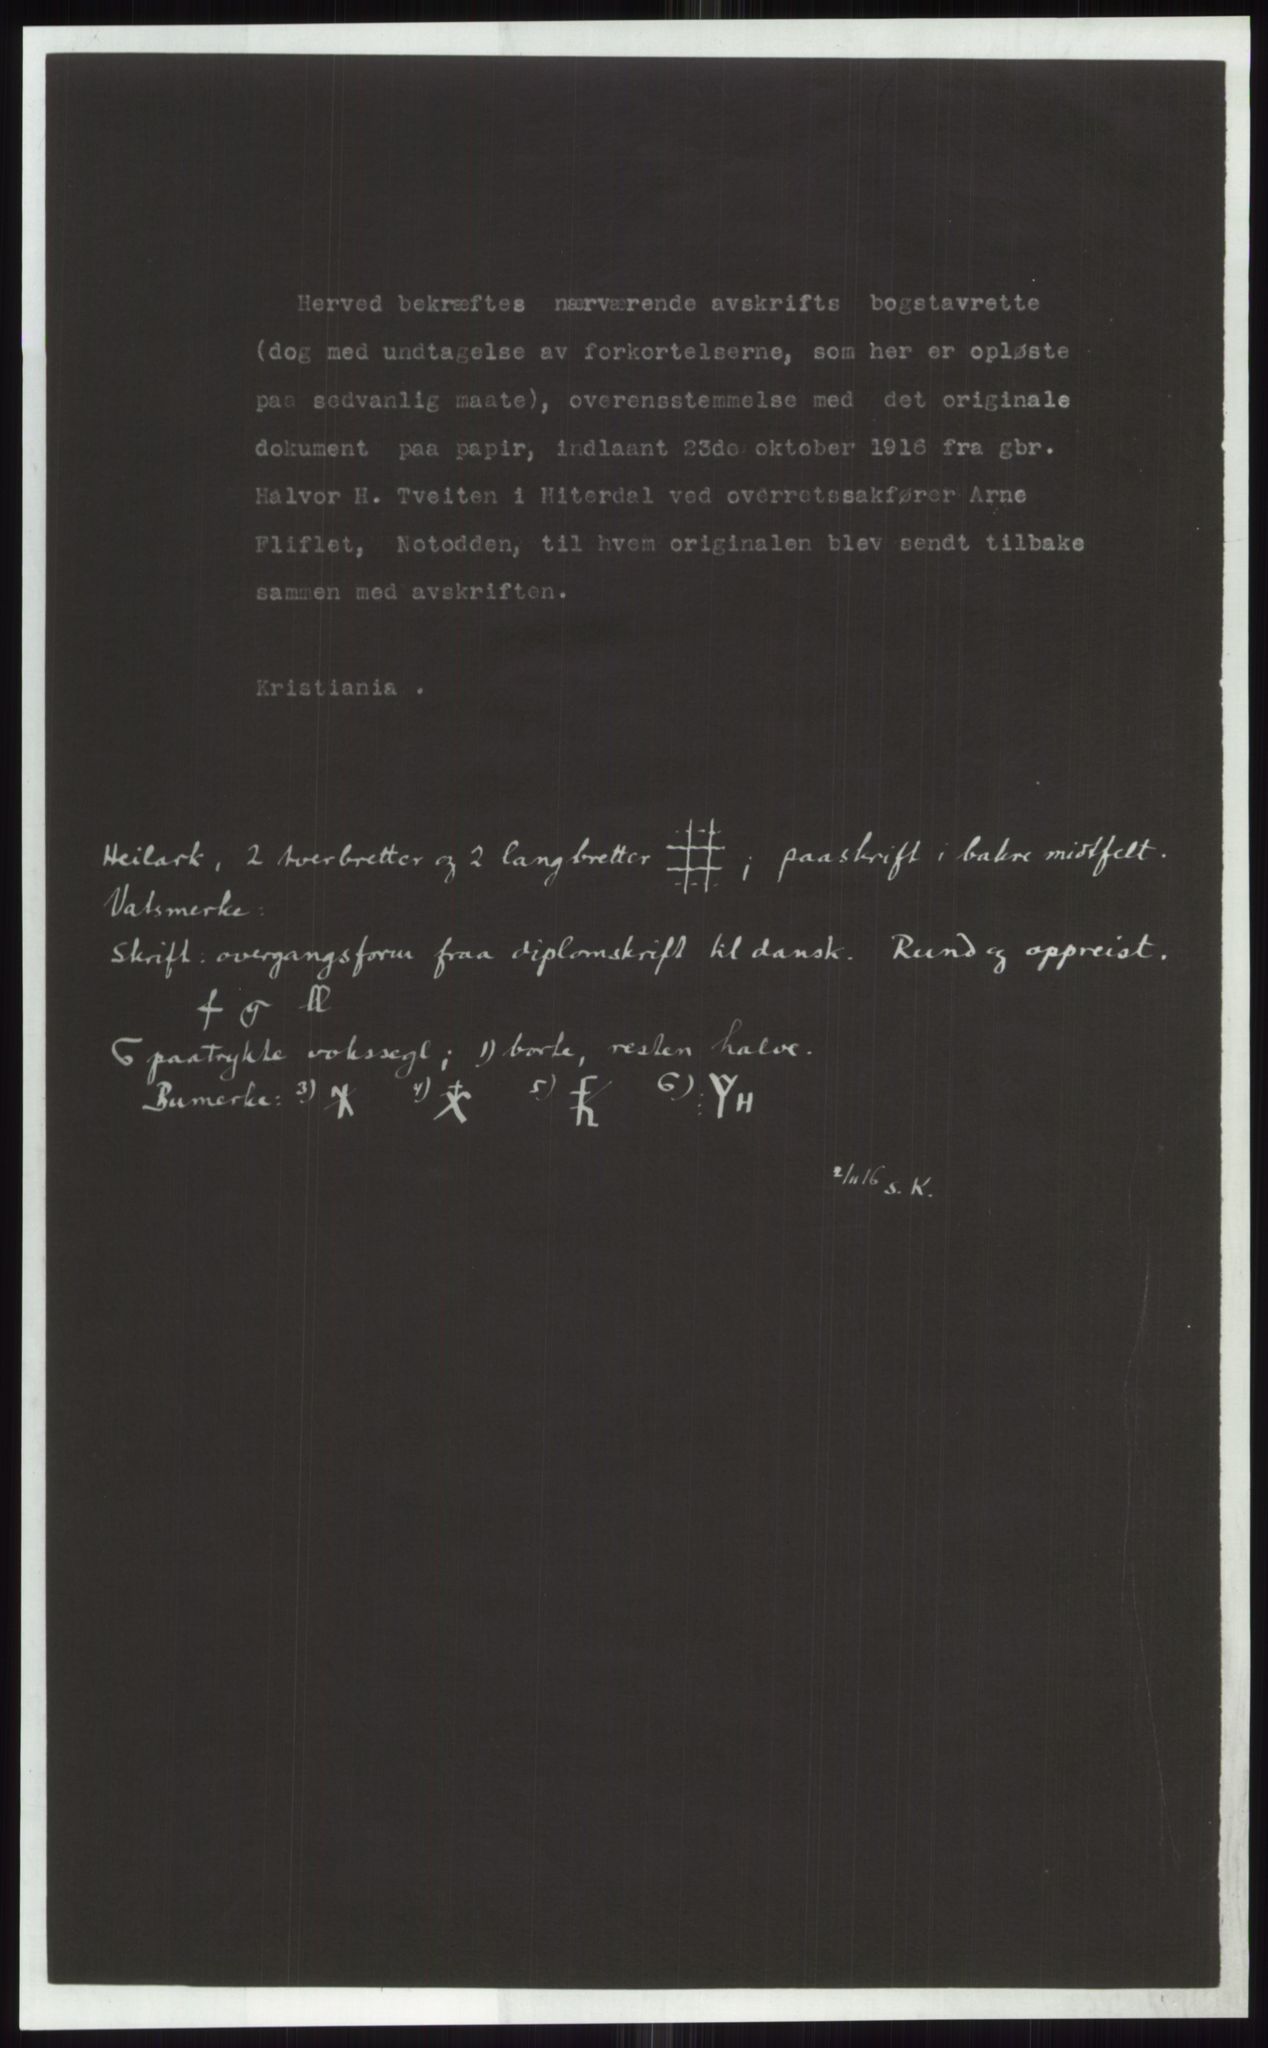 Herved bekræftes nærværende avskrifts bogstavrette
(dog med undtagelse av forkortelserne, som her er opløste
paa sedvanlig maate), overensstemmelse med det originale
dokument paa papir, indlaant 23de oktober 1916 fra gbr.
Halvor H. Tveiten i Hiterdal ved overretssakfører Arne
Fliflet, Notodden, til hvem originalen blev sendt tilbake
sammen med avskriften.
Kristiania .
Heilark, 2 tverbretter og 2 langbretter ; paaskrift i bakre midtfelt.
Vatsmerke:
Skrift: overgangsform fraa diplomskrift til dansk. Rund og oppreist.
f g ll
6 paatrykte vokssegl; 1) borte, resten halve.
Bumerke: 3) 4) 5) 6) H
2/11 16 S. K.